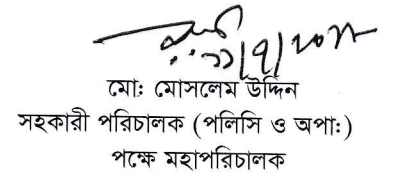 মোঃ মোসলেম উদ্দিন
সহকারী পরিচালক (পলিসি ও অপাঃ)
পক্ষে মহাপরিচালক